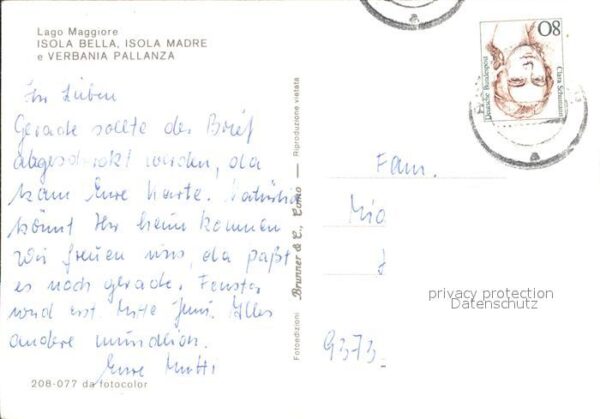 Lago Maggiore
ISOLA BELLA, ISOLA MADRE
e VERBANIA PALLANZA
Ihr Lieben
Gerade sollte der Brief
abgeschickt werden, da
kam Eure Karte. Natürlich
könnt Ihr heim kommen
Wir freuen uns, da paßt
es noch gerade. Fenster
wird erst Mitte Juni. Alles
andere mündlich.
Eure Mutti
208-077 da fotocolor
Fotoedizioni Brunner & C., Como — Riproduzione vietata
80
Deutsche Bundespost
Clara Schumann
Fam.
9373
privacy protection
Datenschutz